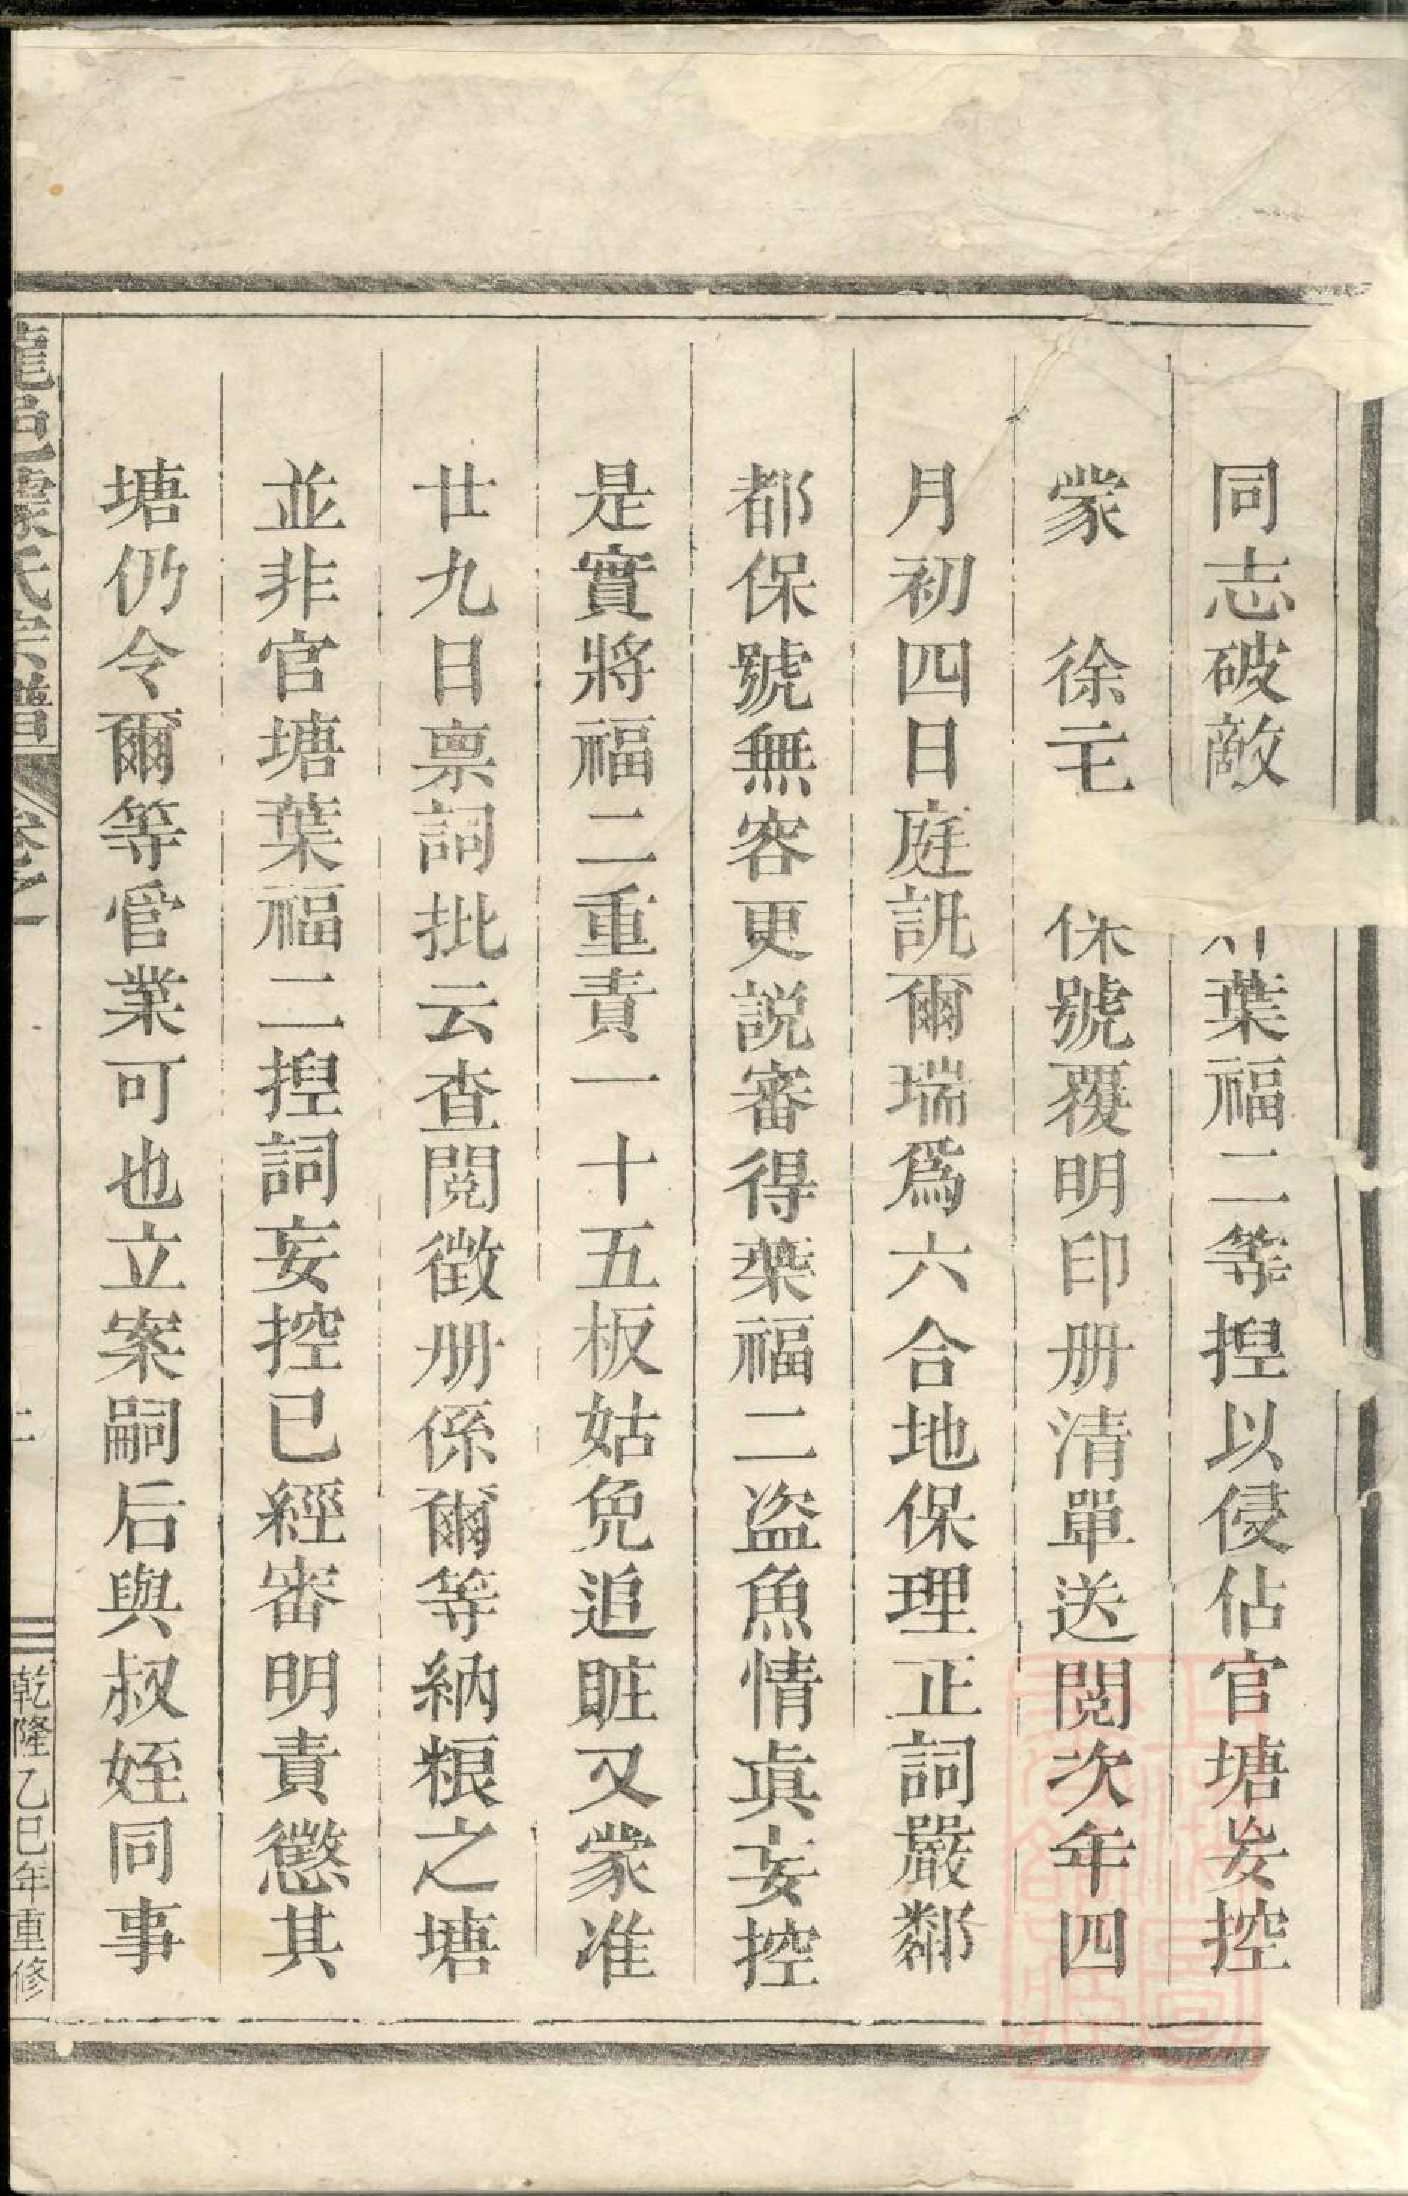 同志破敵葉福二等揑以侵佔官塘妄控
蒙　徐　保號覆明印册清單送閱次年四
月初四日庭訊爾瑞爲六合地保理正詞嚴鄰
都保號無容更説審得葉福二盗魚情真妄控
是實將福二重責一十五板姑免追賍又蒙准
廿九日禀詞批云查閱徵册係爾等納粮之塘
並非官塘葉福二揑詞妄控已經審明責懲其
塘仍令爾等管業可也立案嗣后與叔姪同事
龍邑濲氏宗譜
卷之一
二
乾隆乙巳年重修